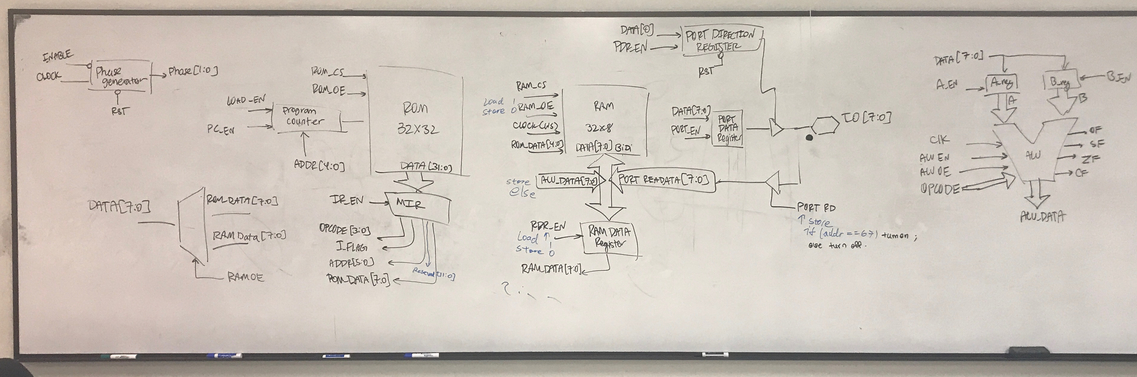 ENABLE
CLOCK
Phase
generator
Phase[1:0]
RST
LOAD_EN
PC_EN
Program
counter
ADDR[4:0]
ROM_CS
ROM_OE
ROM
32X32
DATA[31:0]
IR_EN
MIR
OPCODE[3:0]
I_FLAG
ADDR[5:0]
ROM_DATA[7:0]
DATA[7:0]
ROM_DATA[7:0]
RAM Data[7:0]
RAMOE
RAM_CS
Load 1
Store 0
RAM_OE
CLOCK(WS)
ROM_DATA[4:0]
RAM
32x8
DATA[7:0] BiDi
store
else
ALU_DATA[7:0]
PORT READATA[7:0]
RDR_EN
Load 1
Store 0
RAM DATA
Register
RAM_DATA[7:0]
DATA[0]
PDR_EN
PORT DIRECTION
REGISTER
RST
DATA[7:0]
PORT_EN
PORT
DATA
Register
IO [7:0]
PORT RD
↑ store
if (addr == 67) turn on ;
else turn off.
DATA [7:0]
A_EN
A_reg
B_reg
B_EN
A
B
CLK
ALU EN
ALU OE
OPCODE
ALU
OF
SF
ZF
CF
ALU_DATA